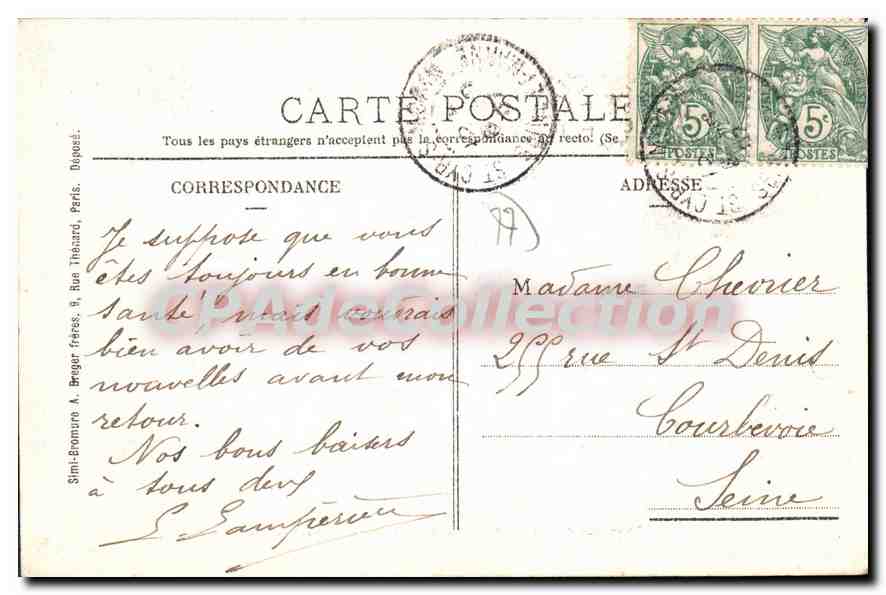 CARTE POSTALE
Tous les pays étrangers n'acceptent pas la correspondance au recto. (Se
CORRESPONDANCE
Je suppose que vous
êtes toujours en bonne
santé, mais voudrais
bien avoir de vos
nouvelles avant mon
retour.
Nos bons baisers
à tous deux
ADRESSE
77
Madame Chevrier
255 rue St Denis
Courbevoie
Seine
5c
POSTES
5c
POSTES
ST CYR
ST CYR
Simi-Bromure A. Breger frères, 9, Rue Thénard, Paris. Déposé.
CPAdeCollection